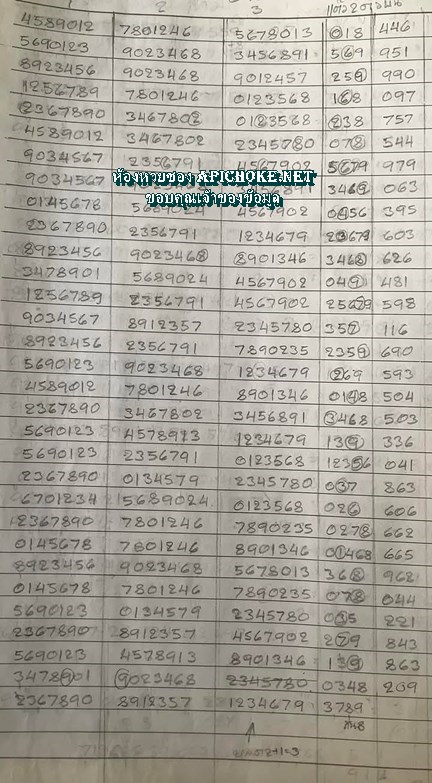 1 2 3
4589012 7801246 5678013 018 446
5690123 9023468 3456891 569 951
8923456 9023468 9012457 259 990
1256789 7801246 0123568 168 097
2367890 3467802 0123568 238 757
4589012 3467802 2345780 078 544
9034567 2356791 4567902 5679 979
ห้องหวยซอง APICHOKE.NET
9034567 3469 063
ขอบคุณเจ้าของข้อมูล
0145678 5689024 4567902 0456 395
2367890 2356791 1234679 23679 603
8923456 9023468 8901346 3468 626
3478901 5689024 4567902 049 481
1256789 2356791 4567902 25679 598
9034567 8912357 2345780 357 116
8923456 2356791 7890235 2359 690
5690123 9023468 1234679 269 593
4589012 7801246 8901346 0148 504
2367890 3467802 3456891 3468 503
5690123 4578913 1234679 139 336
5690123 2356791 0123568 12356 041
2367890 0134579 2345780 037 863
6701234 5689024 0123568 026 606
2367890 7801246 7890235 0278 662
0145678 7801246 8901346 01468 665
8923456 9023468 5678013 368 962
0145678 7801246 7890235 078 044
5690123 0134579 2345780 035 221
2367890 8912357 4567902 279 843
5690123 4578913 8901346 139 863
3478901 9023468 2345780 0348 209
2367890 8912357 1234679 3789